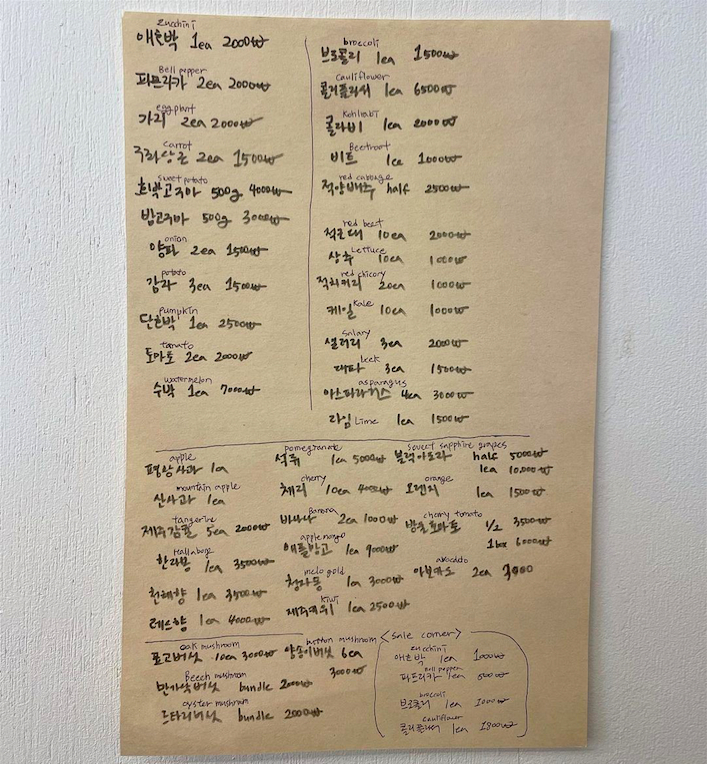 zucchini
애호박 1ea 2000₩
Bell pepper
파프리카 2ea 2000₩
eggplant
가지 2ea 2000₩
carrot
구좌당근 2ea 1500₩
sweet potato
호박고구마 500g 4000₩
밤고구마 500g 3000₩
onion
양파 2ea 1500₩
potato
감자 3ea 1500₩
pumpkin
단호박 1ea 2500₩
tomato
토마토 2ea 2000₩
watermelon
수박 1ea 7000₩
broccoli
브로콜리 1ea 1500₩
cauliflower
콜리플라워 1ea 6500₩
Kohlrabi
콜라비 1ea 2000₩
Beetroot
비트 1ea 1000₩
red cabbage
적양배추 half 2500₩
red beet
적근대 10ea 2000₩
Lettuce
상추 10ea 1000₩
red chicory
적치커리 20ea 1000₩
케일 Kale 10ea 1000₩
Salary
샐러리 3ea 2000₩
leek
대파 3ea 1500₩
asparagus
아스파라거스 4ea 3000₩
라임 Lime 1ea 1500₩
apple
평양사과 1a
mountain apple
산사과 1ea
tangerine
제주감귤 5ea 2000₩
Hallabong
한라봉 1ea 3500₩
천혜향 1ea 3500₩
레드향 1ea 4000₩
pomegranate
석류 1ea 5000₩
cherry
체리 10ea 4000₩
Banana
바나나 2ea 1000₩
apple mango
애플망고 1ea 9000₩
melo gold
청자몽 1ea 3000₩
kiwi
제주키위 1ea 2500₩
sweet sapphire grapes
블랙사파이어 half 5000₩
1ea 10,000₩
orange
오렌지 1ea 1500₩
cherry tomato
방울토마토 1/2 3500₩
1box 6000₩
avocado
아보카도 2ea 3900
oak mushroom
표고버섯 10ea 3000₩
Beech mushroom
만가닥버섯 bundle 2000₩
oyster mushroom
느타리버섯 bundle 2000₩
button mushroom
양송이버섯 6ea
3000₩
<sale corner>
zucchini
애호박 1ea 1000₩
Bell pepper
파프리카 1ea 500₩
broccoli
브로콜리 1ea 1000₩
cauliflower
콜리플라워 1ea 1800₩